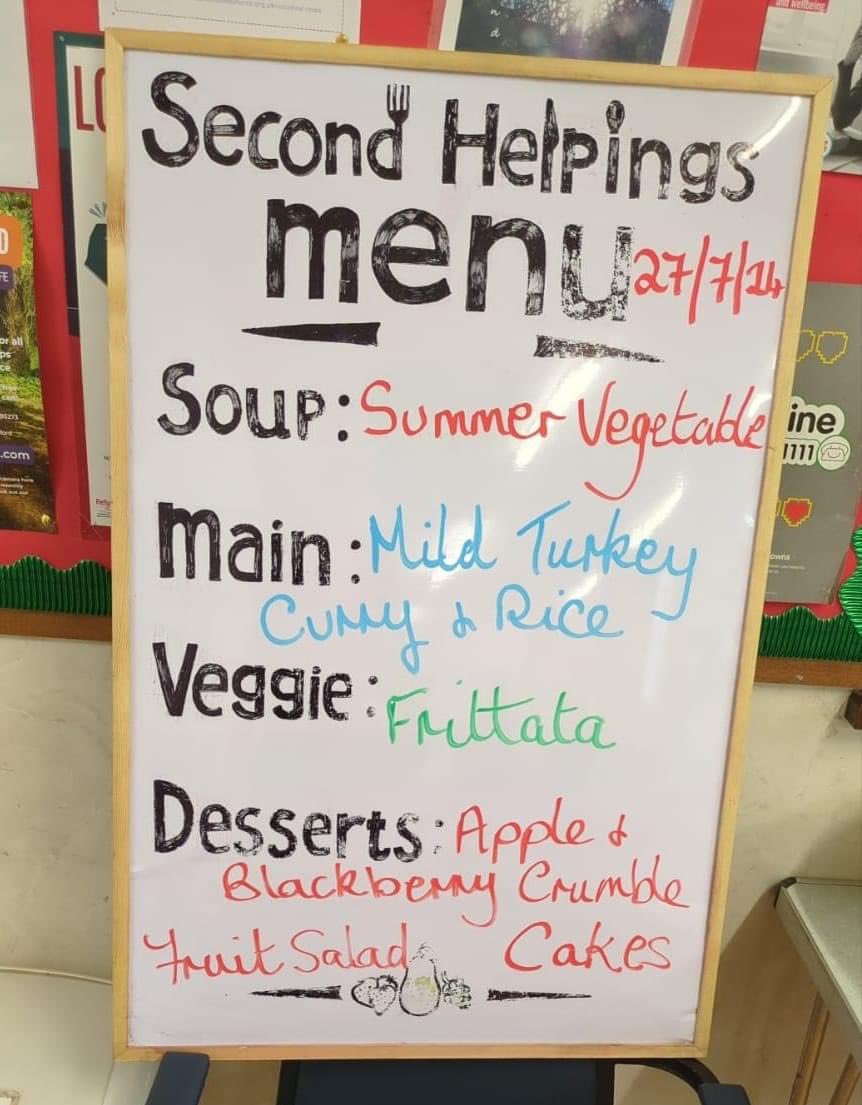 Second Helpings
menu 27/7/24
Soup: Summer Vegetable
Main: Mild Turkey
Curry & Rice
Veggie: Frittata
Desserts: Apple &
Blackberry Crumble
Fruit Salad Cakes
and wellbeing
LO
.com
ine
1111